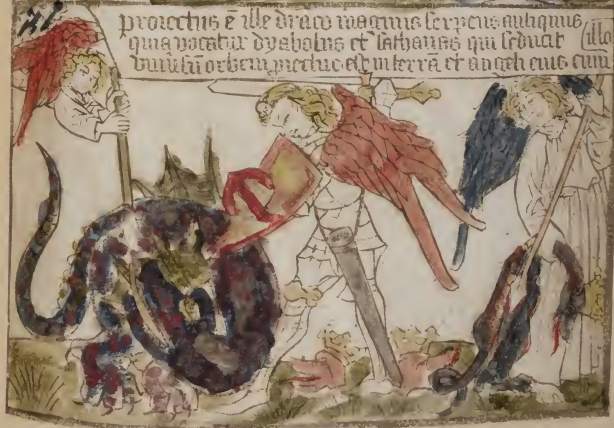 proiectus ē ille draco magnus serpens antiquus
quia vocatur dyabolus et sathanas qui seducit
orbem proiectus est in terrā et angeli eius cum
illo